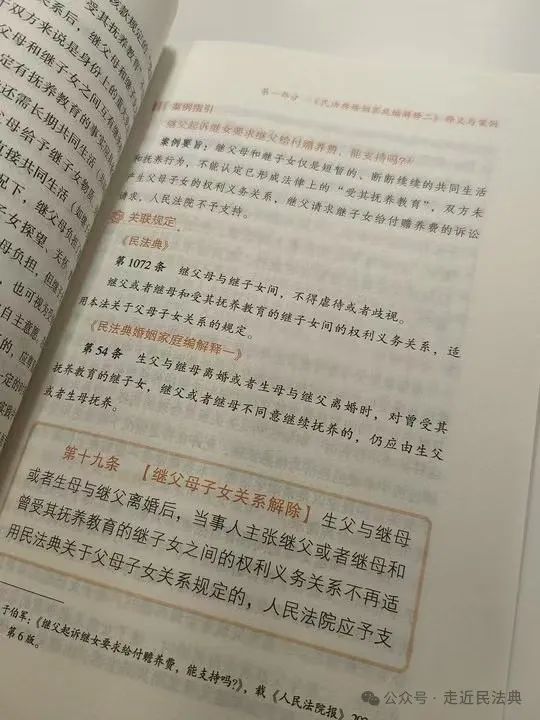 该款规定的
关系后，受其抚养教
于双方来说是身份上的重
父母和继子女间互有
定有抚养教育的事
还需长期共同生活
母给予继子女物质
直接共同生活（如
况下，继父母负担
子女探望、关怀
母负担，但继
，也可视为
自主意愿
的，应
一定的
第一部分 《民法典婚姻家庭编解释二》释义与案例
案例指引
继父起诉继女要求继父给付赡养费，能支持吗？
案例要旨：继父母和继子女仅是短暂的、断断续续的共同生活
和抚养行为，不能认定已形成法律上的“受其抚养教育”，双方未
产生父母子女的权利义务关系，继父请求继子女给付赡养费的诉讼
请求，人民法院不予支持。
关联规定
《民法典》
第1072条 继父母与继子女间，不得虐待或者歧视。
继父或者继母和受其抚养教育的继子女间的权利义务关系，适
用本法关于父母子女关系的规定。
《民法典婚姻家庭编解释一》
第54条 生父与继母离婚或者生母与继父离婚时，对曾受其
抚养教育的继子女，继父或者继母不同意继续抚养的，仍应由生父
或者生母抚养。
第十九条 【继父母子女关系解除】 生父与继母
或者生母与继父离婚后，当事人主张继父或者继母和
曾受其抚养教育的继子女之间的权利义务关系不再适
用民法典关于父母子女关系规定的，人民法院应予支
于伯军：《继父起诉继女要求给付赡养费，能支持吗？》，载《人民法院报》200
第6版。
公众号·走近民法典